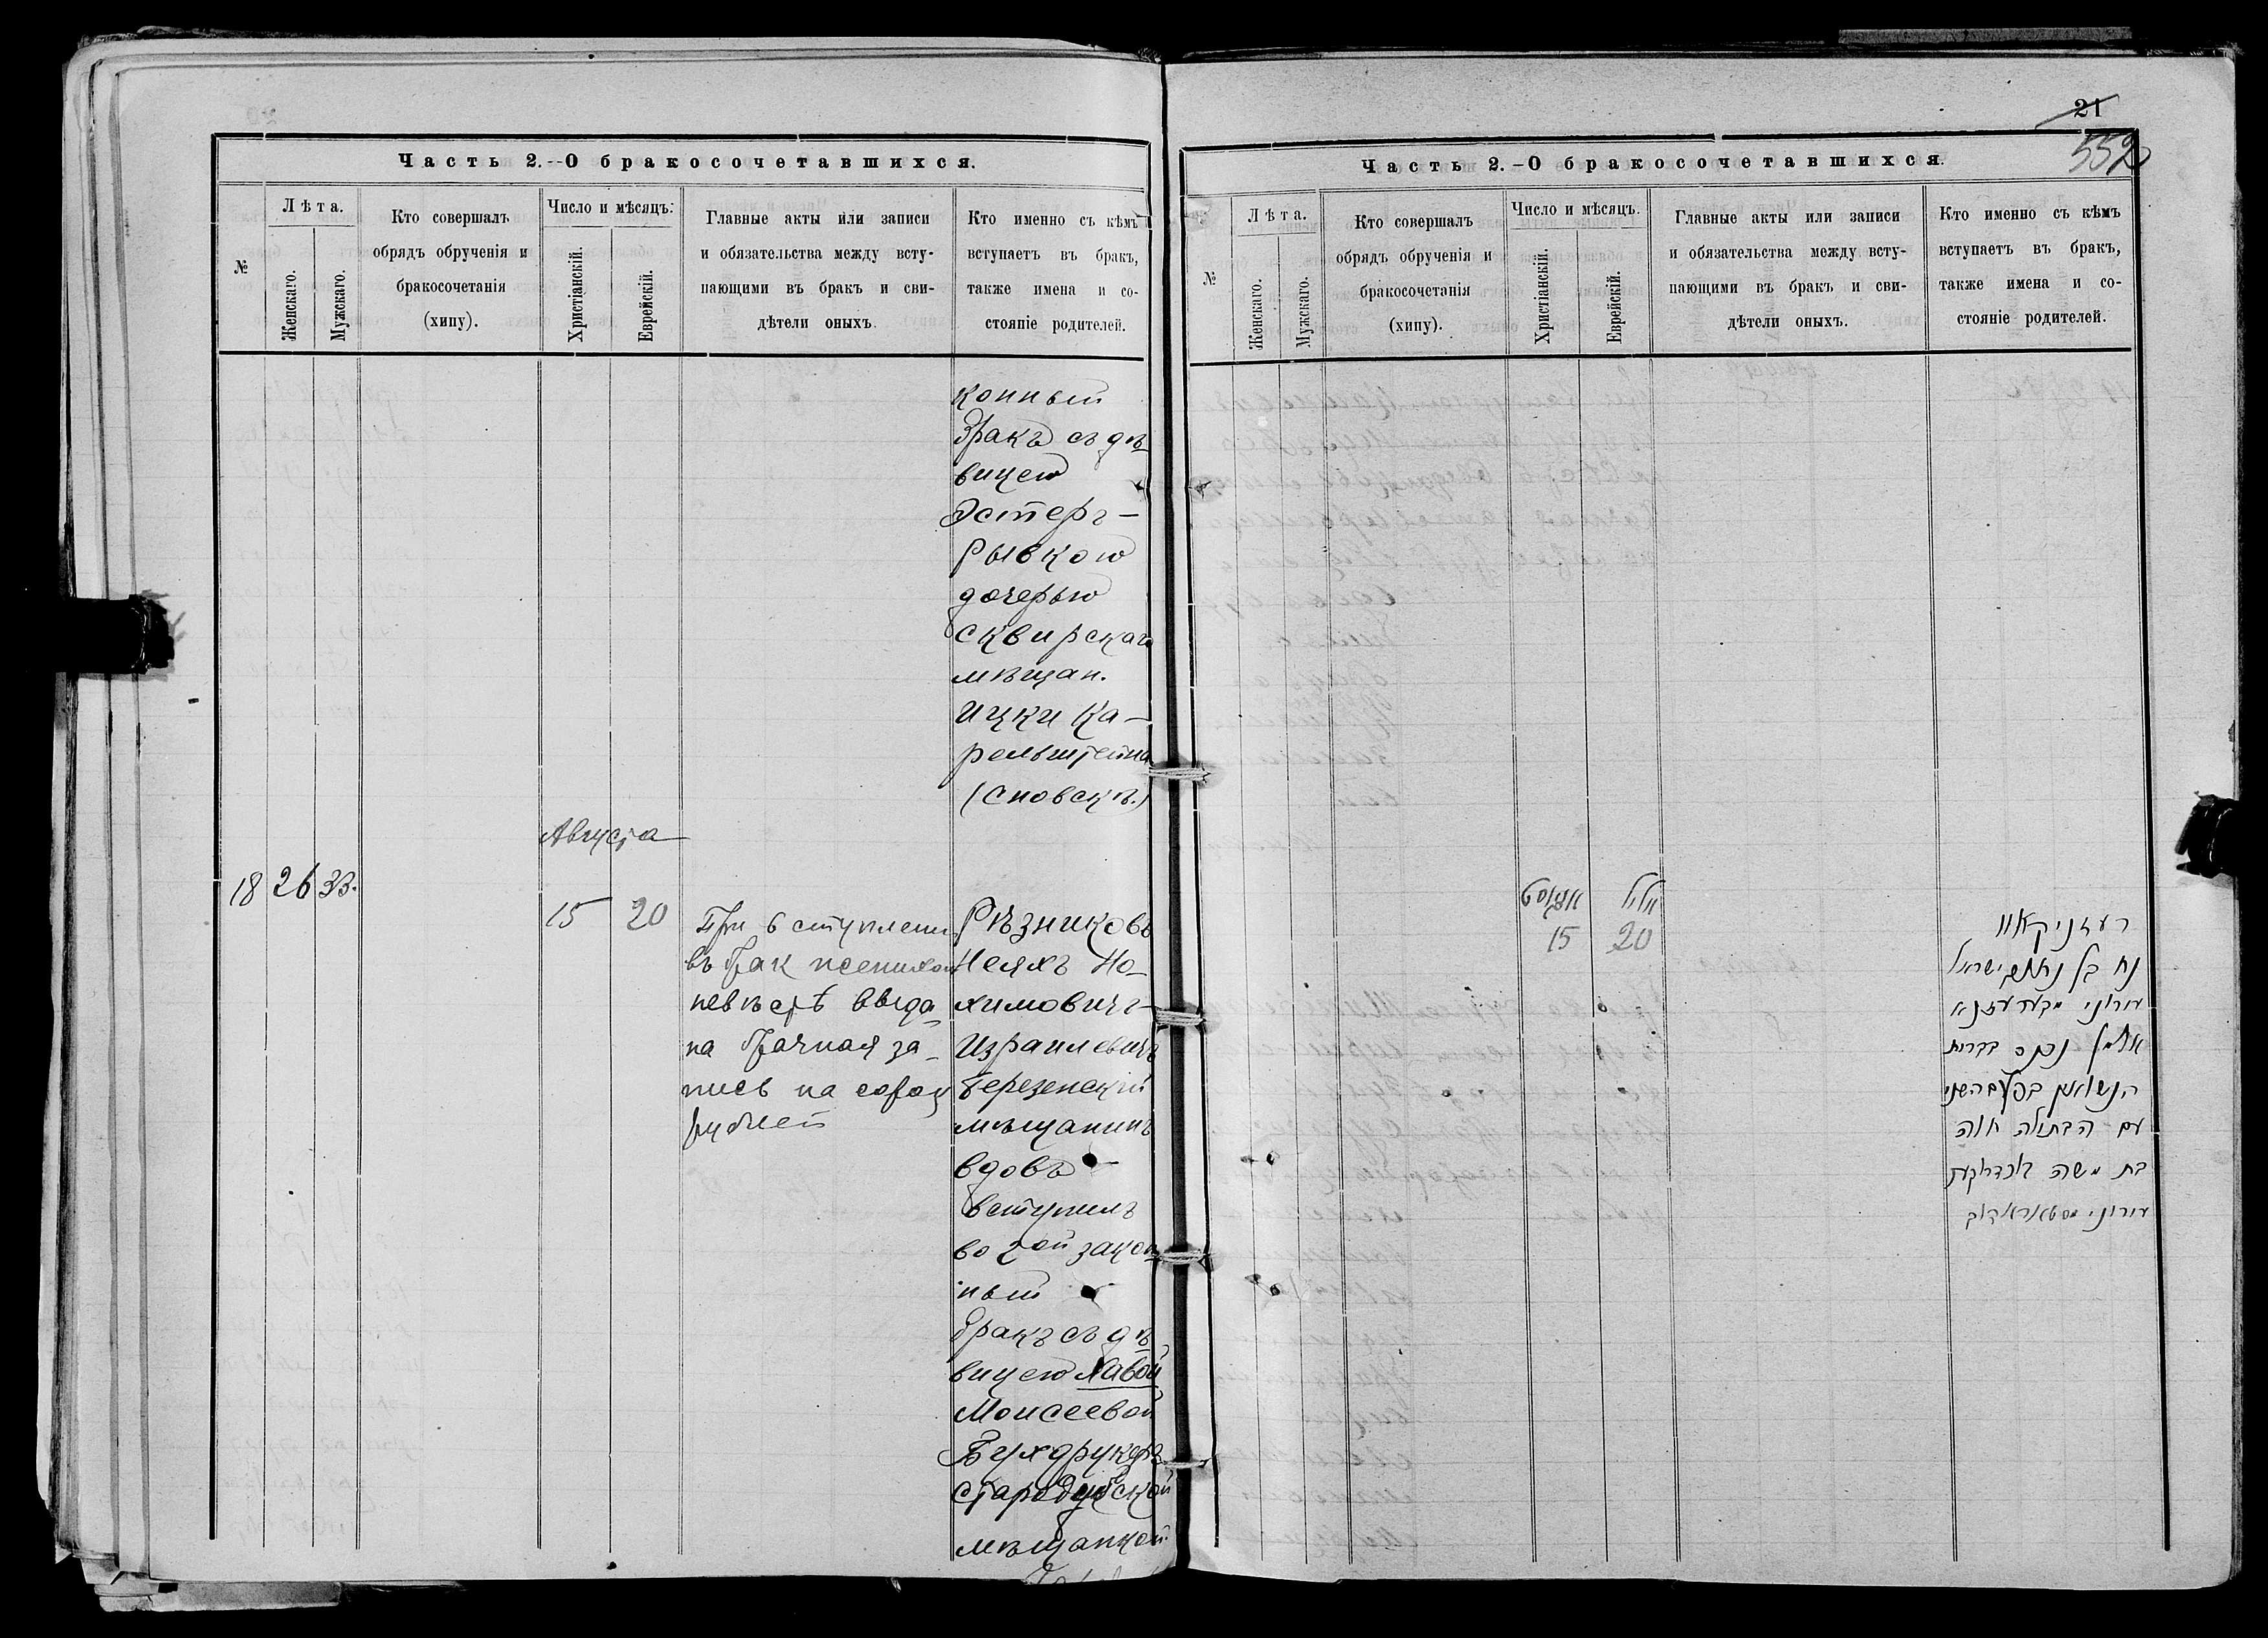 Часть 2.--О бракосочетавшихся.
№
Лѣта.
Женскаго.
Мужскаго.
Кто совершалъ
обрядъ обрученія и
бракосочетанія
(хипу).
Число и мѣсяцъ.
Христіанскій.
Еврейскій.
Главные акты или записи
и обязательства между всту-
пающими въ бракъ и сви-
дѣтели оныхъ.
Кто именно съ кѣмъ
вступаетъ въ бракъ,
также имена и со-
стояніе родителей.
конный
бракъ съ дѣ-
вицею
Эстеръ-
Рывкою
дочерью
сквирскаго
мѣщан.
Ицки Ка-
рельштейна
(Сновскъ.)
Августа
18 26 33.
15 20
При вступлени
въ брак женихом
невѣстѣ выда-
на брачная за-
пись на сорок
рублей
Рѣзниковъ
Ноляхъ
химовичъ-
Израилевичъ
Березенскій
мѣщанинъ
вдовъ
вступилъ
во 2ой закон-
ный
бракъ съ дѣ-
вицею Хавой
Моисеевой
Бухдрукеръ
Стародубской
мѣщанкой
21
552
Часть 2.-О бракосочетавшихся.
№
Лѣта.
Женскаго.
Мужскаго.
Кто совершалъ
обрядъ обрученія и
бракосочетанія
(хипу).
Число и мѣсяцъ.
Христіанскій.
Еврейскій.
Главные акты или записи
и обязательства между всту-
пающими въ бракъ и сви-
дѣтели оныхъ.
Кто именно съ кѣмъ
вступаетъ въ бракъ,
также имена и со-
стояніе родителей.
אויגוסט אלול
15 20
רעזניקאוו
נח בן ישראל
עירוני מבערעזנא
אלמן נכנס בברית
הנשואין בפעם השני
עם הבתולה חוה
בת משה
עירוני מסטאראדוב